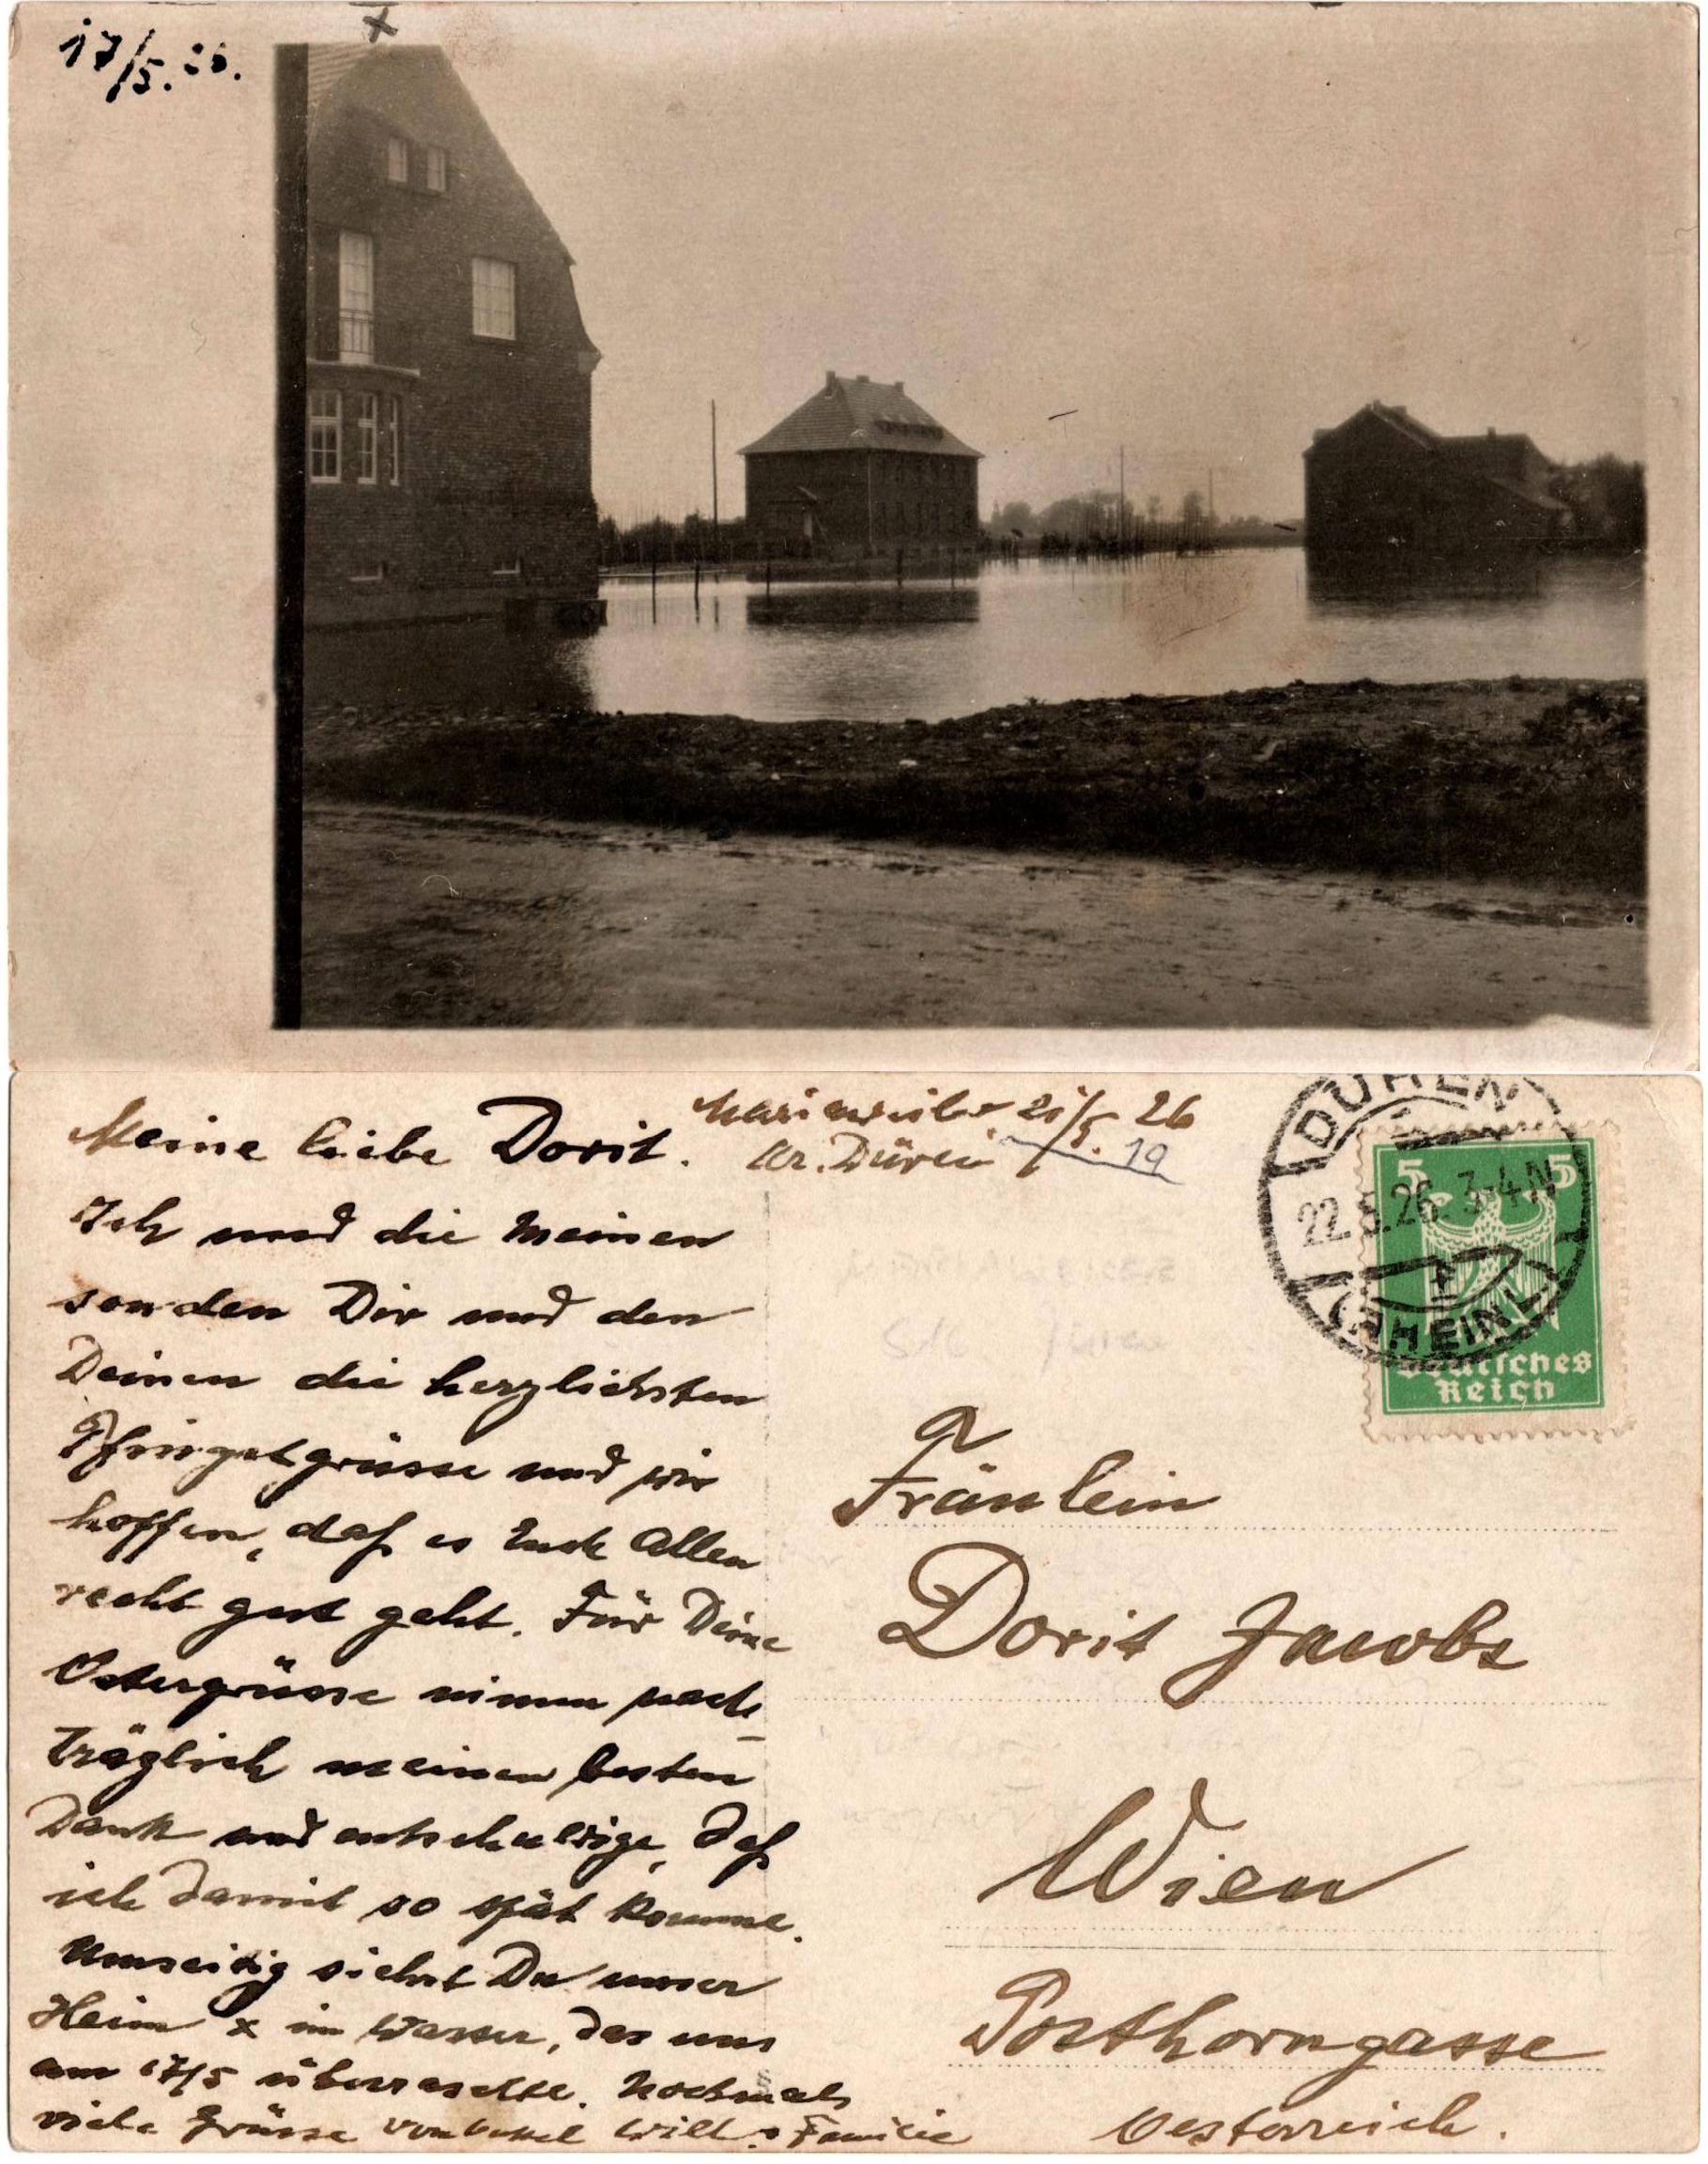 17/5. 26.
x
Meine liebe Dorit.
Marienweiler 21/5. 26
Kr. Düren
19
Ich und die Meinen
senden Dir und den
Deinen die herzlichsten
Pfingstgrüsse und wir
hoffen, daß es Euch Allen
recht gut geht. Für Deine
Ostergrüsse nimm nach-
träglich meinen besten
Dank und entschuldige, daß
ich damit so spät komme.
Umseitig siehst Du unser
Heim x im Wasser, das uns
am 17/5 überraschte. Nochmals
viele Grüsse von Onkel Willi & Familie
DÜREN
22.5.26. 3-4 N
(RHEINL)
5 5
Deutsches
Reich
Fräulein
Dorit Jacobs
Wien
Posthorngasse
Oesterreich.